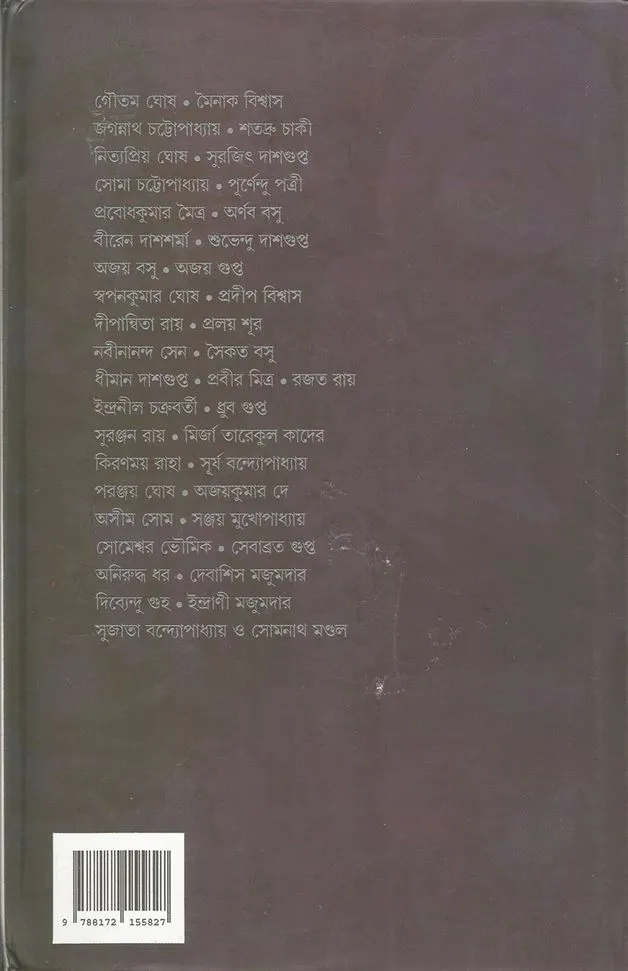 গৌতম ঘোষ • মৈনাক বিশ্বাস
জগন্নাথ চট্টোপাধ্যায় • শতদ্রু চাকী
নিত্যপ্রিয় ঘোষ • সুরজিৎ দাশগুপ্ত
সোমা চট্টোপাধ্যায় • পূর্ণেন্দু পত্রী
প্রবোধকুমার মৈত্র • অর্ণব বসু
বীরেন দাশশর্মা • শুভেন্দু দাশগুপ্ত
অজয় বসু • অজয় গুপ্ত
স্বপনকুমার ঘোষ • প্রদীপ বিশ্বাস
দীপান্বিতা রায় • প্রলয় শূর
নবীনানন্দ সেন • সৈকত বসু
ধীমান দাশগুপ্ত • প্রবীর মিত্র • রজত রায়
ইন্দ্রনীল চক্রবর্তী • ধ্রুব গুপ্ত
সুরঞ্জন রায় • মির্জা তারেকুল কাদের
কিরণময় রাহা • সূর্য বন্দ্যোপাধ্যায়
পরঞ্জয় ঘোষ • অজয়কুমার দে
অসীম সোম • সঞ্জয় মুখোপাধ্যায়
সোমেশ্বর ভৌমিক • সেবাব্রত গুপ্ত
অনিরুদ্ধ ধর • দেবাশিস মজুমদার
দিব্যেন্দু গুহ • ইন্দ্রাণী মজুমদার
সুজাতা বন্দ্যোপাধ্যায় ও সোমনাথ মণ্ডল
9 788172 155827